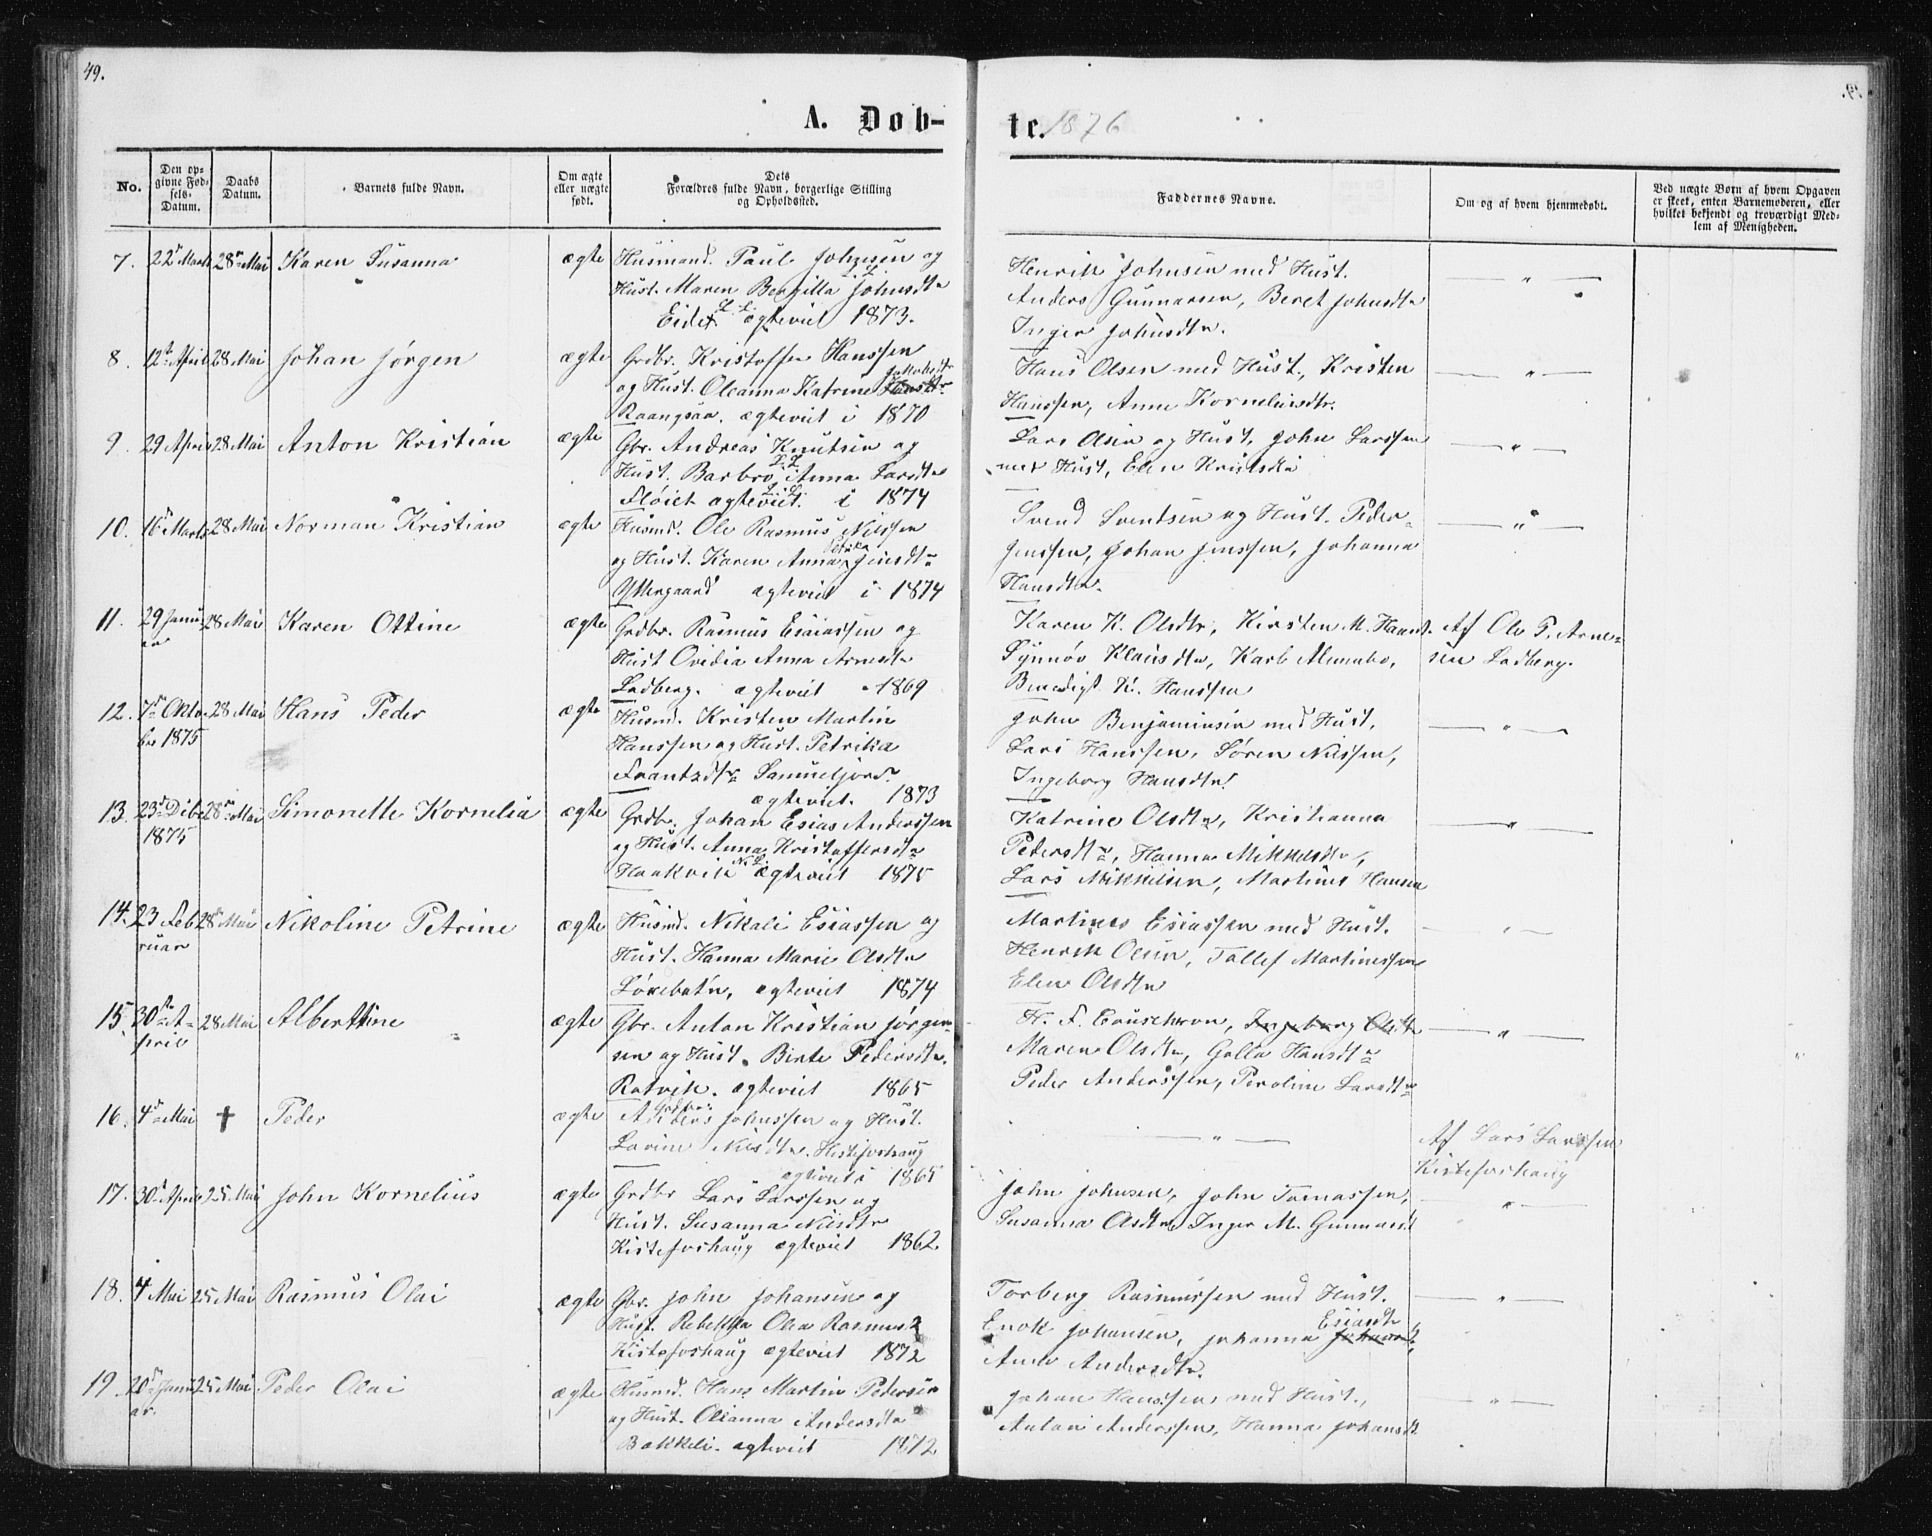 49.
A. Døb-
te. 1876
No.
Den op-
givne Fød-
sels-
Datum.
Daabs
Datum.
Barnets fulde Navn.
Om ægte
eller uægte
født.
Dets
Forældres fulde Navn, borgerlige Stilling
og Opholdssted.
Faddernes Navne.
Om og af hvem hjemmedøbt.
Ved uægte Børn af hvem Opgaven
er skeet, enten Barnemoderen, eller
hvilket bekjendt og troværdigt Med-
lem af Menigheden.
7. 22d Marts 28de Mai Karen Susanna ægte Husmand. Paul Johnsen og
Hust. Maren Bergitta Johnsdtr
Eidet ægteviet 1873.
Henrik Johnsen med Hust.
Anders Gunnarsen, Beret Johnsdtr
Inger Johnsdtr.
8. 12te April 28 Mai Johan Jørgen ægte Grdbr. Kristoffer Hanssen
og Hust. Oleanna Katrine
Raangsaa. ægteviet i 1870
Hans Olsen med Hust, Kristen
Hanssen, Anne Kornelius dtr.
9. 29 April 28 Mai Anton Kristian ægte Gbr. Andreas Knutsen og
Hust. Barbro Anna Larsdtr
Fløiet ægteviet. i 1874
Lars Olsen og Hust, John Larssen
med Hust, Elen
10. 16d Marts 28 Mai Norman Kristian ægte Husmd. Ole Rasmus Nilssen
og Hust. Karen Anna Jensdtr
Yttergaard ægteviet i 1874
Svend Svendsen og Hust. Peder
Jenssen, Johan Jenssen, Johanna
Hansdtr.
11. 29 Janu- 28 Mai Karen Ottine ægte Grdbr. Rasmus Esaiassen og
ar
Hust Ovidia Anna Arnesdtr
Ladberg. ægteviet 1869
Karen K. Olsdtr, Kirsten M. Hansd. Af Ole P. Arne-
Synnøv Klausdtr, Karl Almabo, sen Ladberg.
Benedigt K. Hanssen
12. 7de Okto- 28 Mai Hans Peder ægte Husmd. Kristen Martin
ber 1875
Hanssen og Hust. Petrika
Frantzdtr Samueljord.
ægteviet. 1873
John Benjaminsen med Hust,
Lars Hanssen, Søren Nilssen,
Ingeborg Hansdtr.
13. 23d Dcbr 28de Mai Simonette Kornelia ægte Grdbr. Johan Esias Anderssen
1875
og Hust. Anna Kristoffersdtr
Haakvik ægteviet 1875
Katrine Olsdtr, Kristianna
Pedersdtr, Hanna Mikkelsdtr,
Lars Mikkelsen, Martines Hansen
14. 23 Feb 28de Mai Nikoline Petrine ægte Husmd. Nikali Esiassen og
ruar
Hust. Hanna Marie Olsdtr
ægteviet 1874
Martines Esiassen med Hust.
Henrik Olsen, Tollef Martinessen
Elen Olsdtr
15. 30te A- 28 Mai Albertine ægte Gbr. Anton Kristian Jørgen-
pril
sen og Hust. Birte Pedersdtr.
Ratvik. ægteviet 1865
Ingeborg Olsdtr
Maren Olsdtr, Golla Hansdtr
Peder Anderssen, Peroline Larsdtr
16. 4de Mai † Peder ægte Grdbr.
Anders Johnssen og Hust.
Lovine Nilsdtr. Kistefoshaug
ægteviet 1865
Af Lars Larssen
Kistefoshaug
17. 30d April 25 Mai John Kornelius ægte Grdbr Lars Larssen og
Hust. Susanna Nilsdtr
Kistefoshaug ægteviet 1862.
John Johnsen, John Tomassen,
Susanna Olsdtr, Inger M. Gunnarsd
18. 4 Mai 25 Mai Rasmus Olai ægte Gbr. John Johansen og
Hust. Rebekka Olea Rasmusd
Kistefoshaug ægteviet 1872
Torberg Rasmussen med Hust.
Enok Johansen, Johanna Esiasdtr
Ane Andersdtr.
19. 20d Janu 25 Mai Peder Olai ægte Husmd. Hans Martin Pedersen
ar.
og Hust. Olianna Andersdtr
Bakkeli. ægteviet 1872
Johan Hanssen med Hust.,
Antoni Anderssen, Hanna Johansdt.